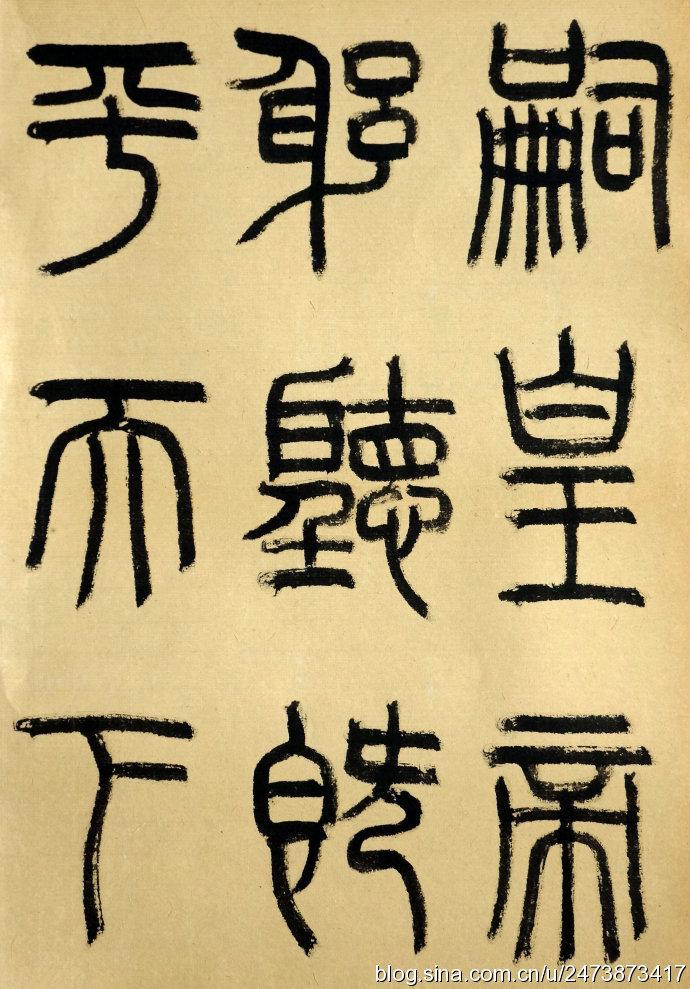 嗣皇帝
躳聽既
平天下
blog.sina.com.cn/u/2473873417